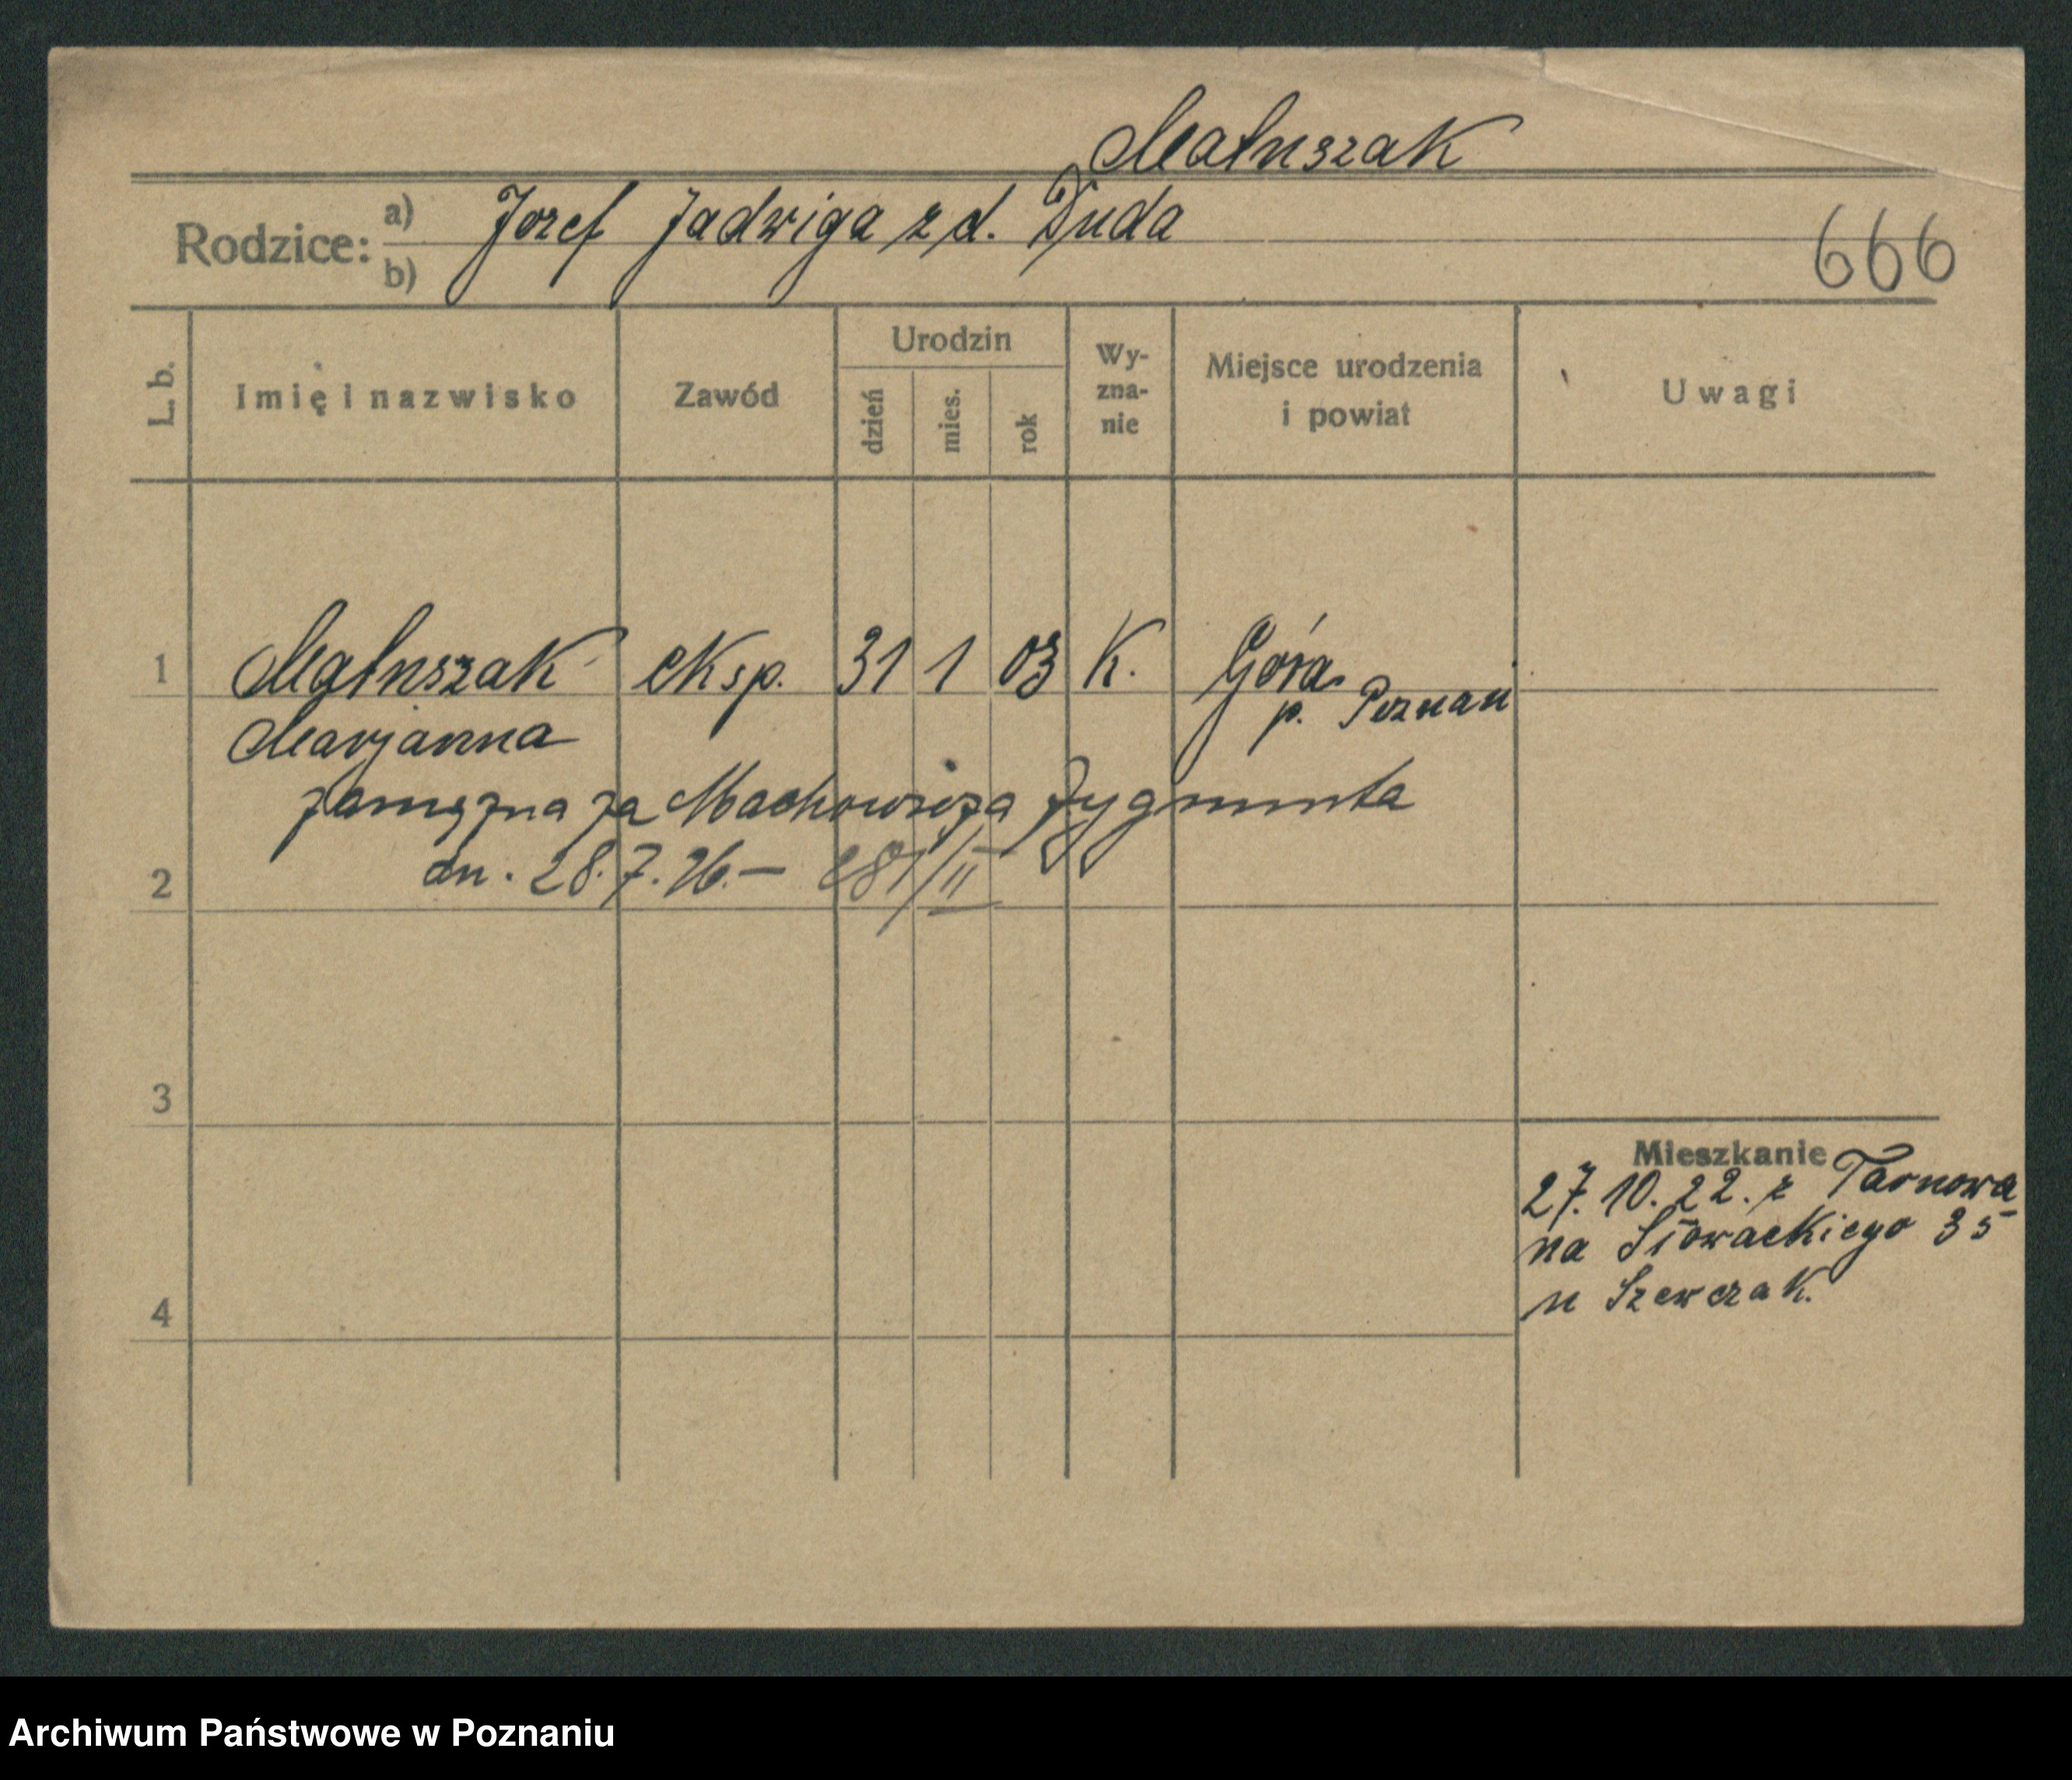 Matuszak
Rodzice: a) Jozef Jadwiga z d. Duda
b)
666
L. b. Imię i nazwisko Zawód Urodzin dzień mies. rok Wy-zna-nie Miejsce urodzenia i powiat Uwagi
1 Matuszak eksp. 31 1 03 K. Góra
p. Poznań
Marjanna
zamężna za Machowicza Zygmunta
2 dn. 28.7.26.— 281/II
3
Mieszkanie
27.10.22. z Tarnowa
na Słowackiego 35
4 u Szewczak.
Archiwum Państwowe w Poznaniu